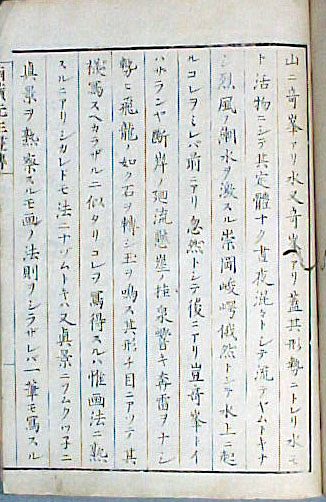 山ニ奇峯アリ水又奇峯アリ蓋其形勢ニトレリ水モ
ト活物ニシテ其定體ナク晝夜混々トシテ流テヤムトキナ
シ烈風ノ制水ヲ激スル崇岡峻崿俄然トシテ水上ニ起
ルコレヲミレバ前ニアリ忽然トシテ後ニアリ豈奇峯トイ
ハサランヤ断岸ノ廻流懸崖ノ挂泉響キ奔雷ヲナシ
勢ヒ飛龍ノ如ク石ヲ轉シ玉ヲ鳴ス其形チ目ニアリテ其
様寫スヘカラザルニ似タリコレヲ寫得スルハ惟画法ニ熟
スルニアリシカレドモ法ニナツムトキハ又真景ニウ
真景ヲ熟察スルモ画ノ法則ヲシラザレバ一筆モ寫スル